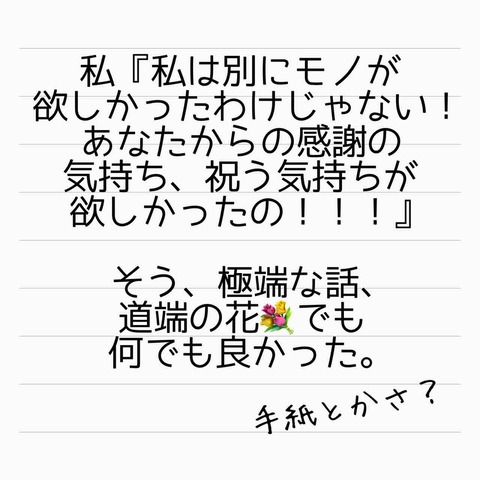 私『私は別にモノが
欲しかったわけじゃない！
あなたからの感謝の
気持ち、祝う気持ちが
欲しかったの！！！』
そう、極端な話、
道端の花💐でも
何でも良かった。
手紙とかさ？